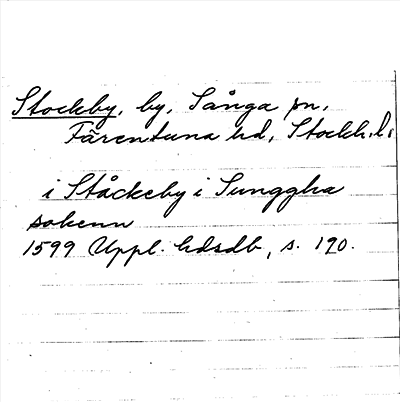 Stockby, by, Sånga sn,
Färentuna hd, Stockh. l.
i Ståckeby i Sunggha
sokenn
1599 Uppl. hdsdb, s. 190.